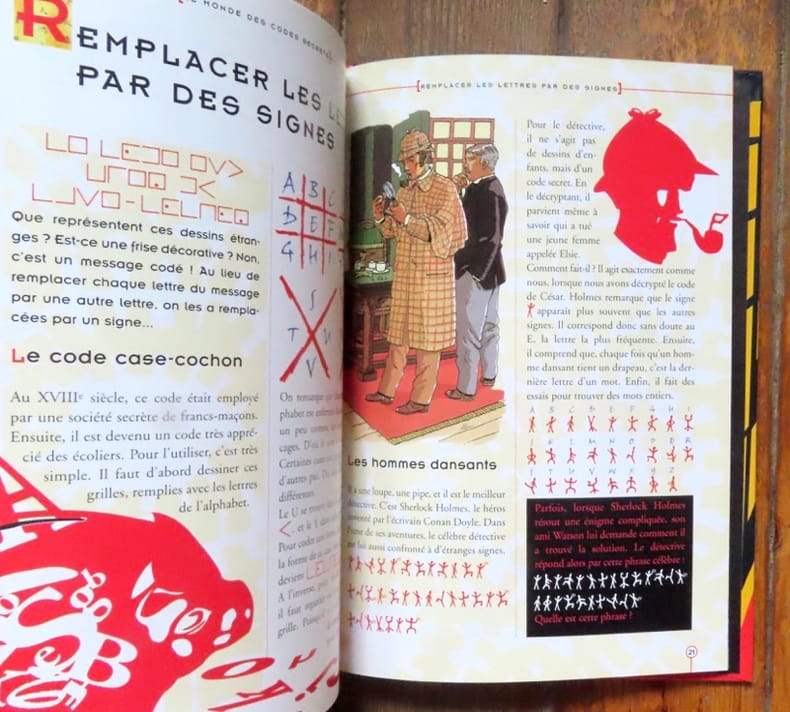 MONDE DES CODES SECRETS
REMPLACER LES
PAR DES SIGNES
Que représentent ces dessins étran-
ges ? Est-ce une frise décorative ? Non,
c'est un message codé ! Au lieu de
remplacer chaque lettre du message
par une autre lettre, on les a rempla-
cées par un signe...
Le code case-cochon
Au XVIIIe siècle, ce code était employé
par une société secrète de francs-maçons.
Ensuite, il est devenu un code très appré-
cié des écoliers. Pour l'utiliser, c'est très
simple. Il faut d'abord dessiner ces
grilles, remplies avec les lettres
de l'alphabet.
A B C
D E F
G H I
S
T U
V
On remarque
phabet ne
un peu comme
cages. D'où
Certaines
d'autres pas.
différents.
Le U se trouve
<, et le
Pour coder
la forme de
devient
A l'inverse,
il faut
grille.
[REMPLACER LES LETTRES PAR DES SIGNES]
Les hommes dansants
Il a une loupe, une pipe, et il est le meilleur
détective. C'est Sherlock Holmes, le héros
inventé par l'écrivain Conan Doyle. Dans
l'une de ses aventures, le célèbre détective
est lui aussi confronté à d'étranges signes.
Pour le détective,
il ne s'agit pas
de dessins d'en-
fants, mais d'un
code secret. En
le décryptant, il
parvient même à
savoir qui a tué
une jeune femme
appelée Elsie.
Comment fait-il ? Il agit exactement comme
nous, lorsque nous avons décrypté le code
de César. Holmes remarque que le signe
apparaît plus souvent que les autres
signes. Il correspond donc sans doute au
E, la lettre la plus fréquente. Ensuite,
il comprend que, chaque fois qu'un hom-
me dansant tient un drapeau, c'est la der-
nière lettre d'un mot. Enfin, il fait des
essais pour trouver des mots entiers.
A B C D E F G H I
L M N O P R
S T U V
Parfois, lorsque Sherlock Holmes
résout une énigme compliquée, son
ami Watson lui demande comment il
a trouvé la solution. Le détective
répond alors par cette phrase célèbre :
Quelle est cette phrase ?
21